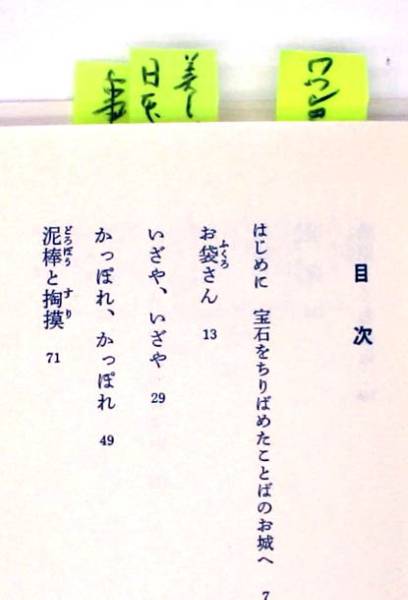 目次
はじめに 宝石をちりばめたことばのお城へ 7
お袋さん 13
ふくろ
いざや、いざや 29
かっぽれ、かっぽれ 49
泥棒と掏摸 71
どろぼう すり